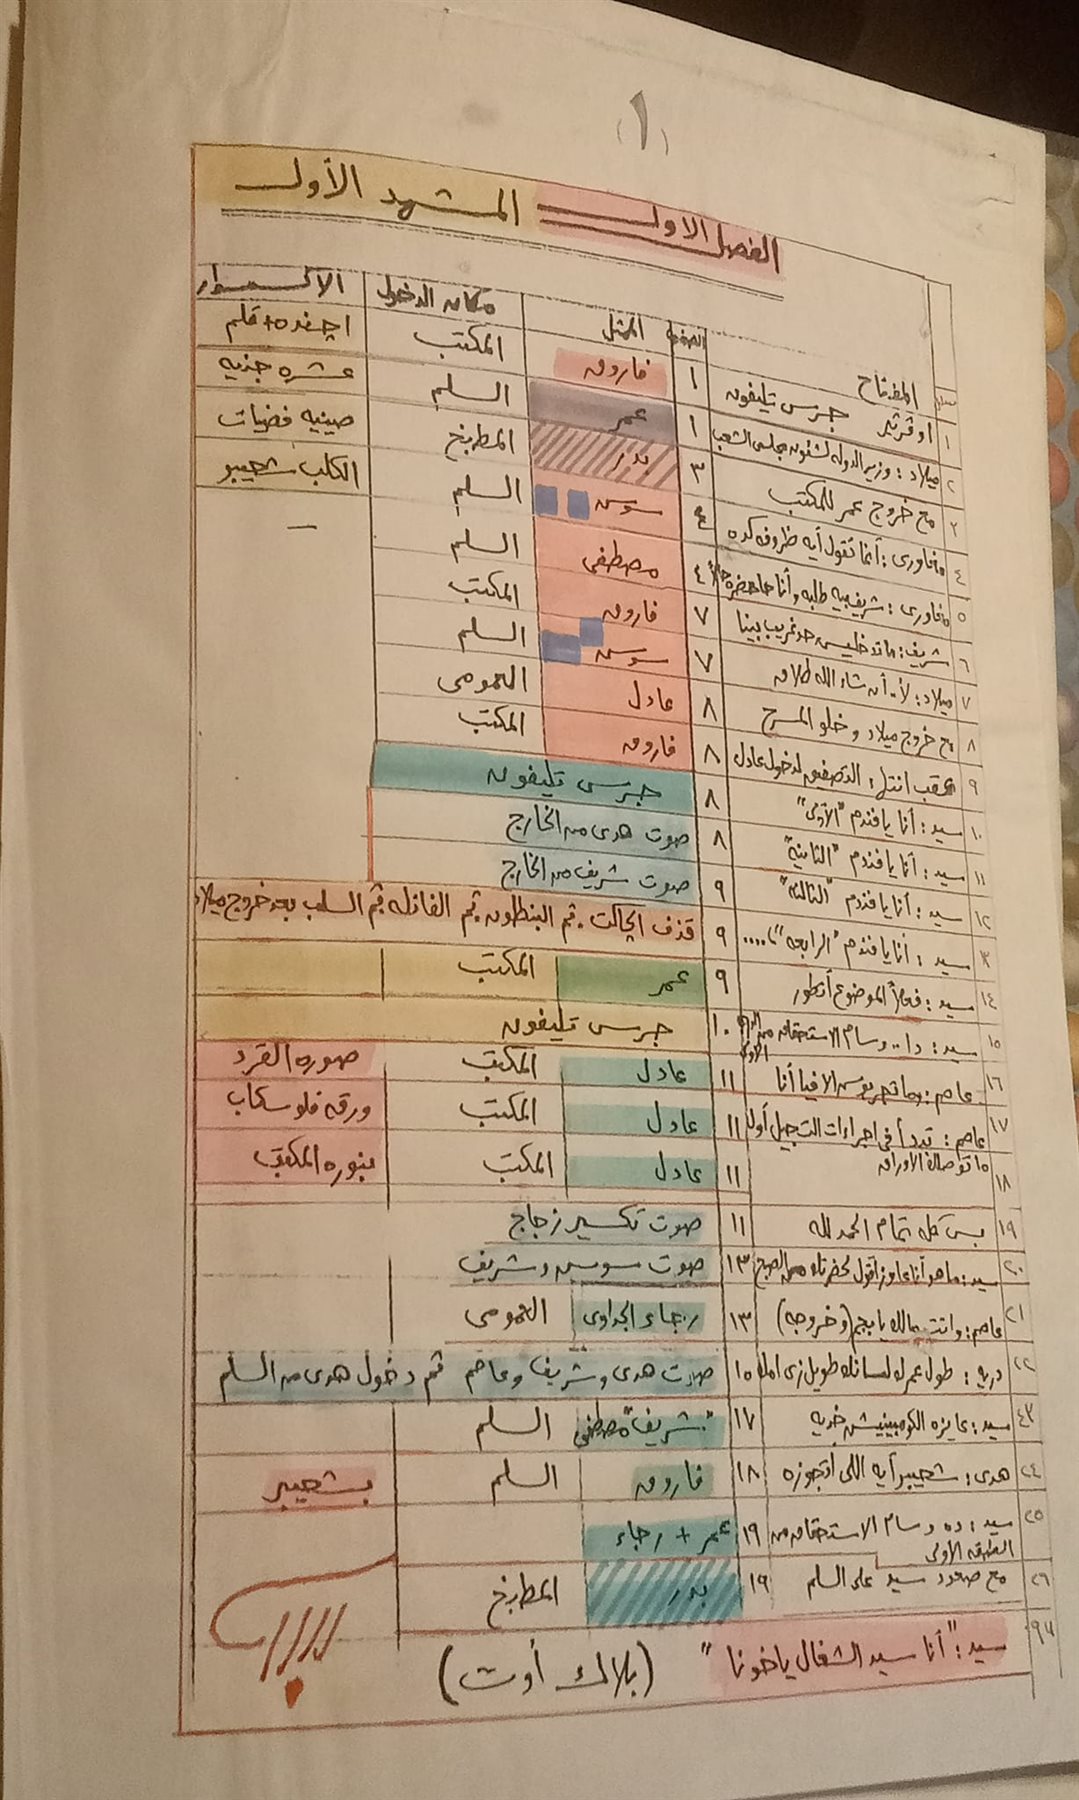 (١)
الفصل الأول = المشهد الأول
المفتاح الصفحة الممثل مكان الدخول الاكسسوار
١ اوڤرتير جرس تليفون ١ فاروق المكتب اچنده + قلم
٢ ميلاد : وزير الدوله لشئون مجلس الشعب ١ عمر السلم عشره جنيه
٣ مع خروج عمر للمكتب ٣ بدر المطبخ صينيه فضيات
٤ مغاورى : أنما تقول أيه ظروفه كده ٤ سوسن السلم الكلب شحيبر
٥ مغاورى : شريف بيه طلبه وأنا حاحضره حالاً ٤ مصطفى السلم —
٦ شريف : ماتدخليش حد غريب بينا ٧ فاروق المكتب
٧ ميلاد : لأ.. أن شاء الله طلاق ٧ سوسن السلم
٨ مع خروج ميلاد وخلو المسرح ٨ عادل العمومى
٩ عقب انتهاء التصفيق لدخول عادل ٨ فاروق المكتب
١٠ سيد : أنا يا فندم "الأولى" ٨ جرس تليفون
١١ سيد : أنا يا فندم "الثانية" ٨ صوت هدى من الخارج
١٢ سيد : أنا يا فندم "الثالثه" ٩ صوت شريف من الخارج
١٣ سيد : أنا يا فندم "الرابعه" .... ٩ قذف الچاكت . ثم البنطلون ثم الفانله ثم السلب بعد خروج ميلاد
١٤ سيد : فعلاً الموضوع أتطور ٩ عمر المكتب
١٥ سيد : دا.. وسام الاستحقاق من الدرجة الأولى ١٠ جرس تليفون
١٦ عاصم : وما تجريقوس الا فيا أنا ١١ عادل المكتب صوره القرد
١٧ عاصم : تبدأ فى اجراءات التسجيل أول ١١ عادل المكتب ورقه فلوسكاب
١٨ ما توصلك الأوراق ١١ عادل المكتب بنوره المكتب
١٩ بس كله تمام الحمد لله ١١ صوت تكسير زجاج
٢٠ سيد : ما هو أنا عاوز أقول لحضرتك من الصبح ١٣ صوت سوسن وشريف
٢١ عاصم : وانت مالك يا بجم (وخروجه) ١٣ رجاء الجداوى العمومى
٢٢ دريه : طول عمرك لسانك طويل زى امك ١٥ صوت هدى وشريف وعاصم ثم دخول هدى من السلم
٢٣ سيد : عايزه الكومبينيشن خديه ١٧ "شريف" مصطفى السلم
٢٤ هدى : شحيبر أيه اللى أتجوزه ١٨ فاروق السلم بشحيبر
٢٥ سيد : ده وسام الاستحقاق من الطبقه الأولى ١٩ عمر + رجاء
٢٦ مع صعود سيد على السلم ١٩ بدر المطبخ
سيد : "أنا سيد الشغال ياخونا" (بلاك أوت)